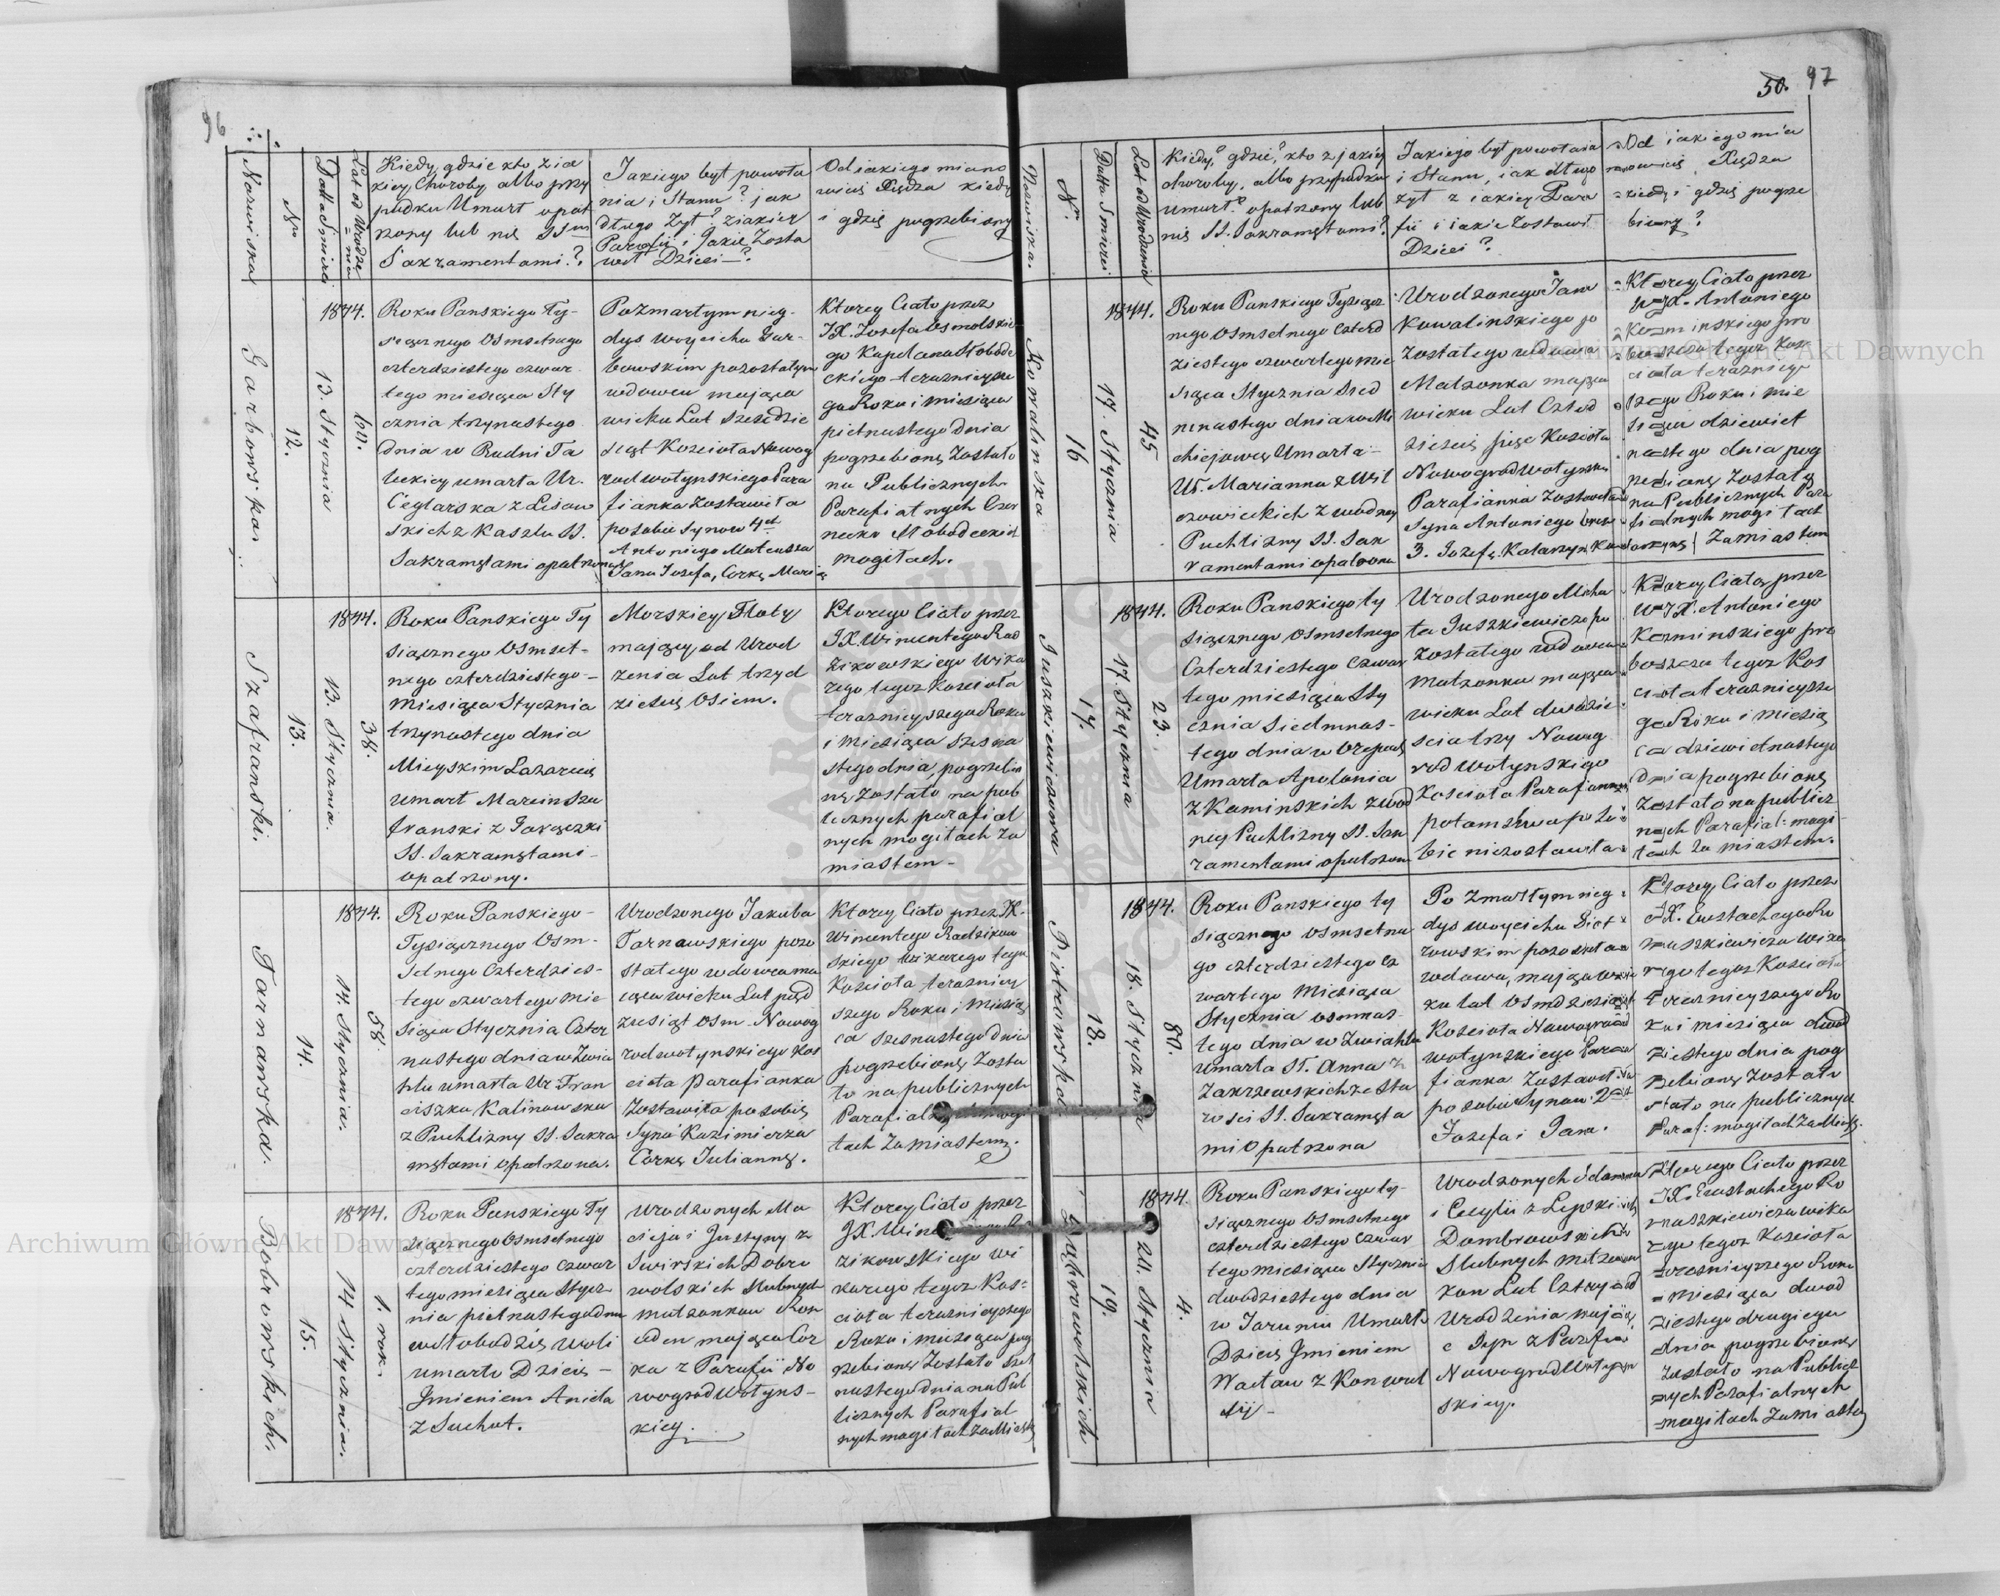 96
Nazwiska
Nro
Datta Smierci
Lat od Urodze
= nia
Kiedy, gdzie kto, z ia
kiey Choroby albo przy
padku Umarł opat
rzony lub nię SSmi
Sakramentami?
Jakiego był powoła
nia i Stanu? jak
długo żył? z iakiey
Parafii i Jakie Zosta
wił Dzieci?
Od iakiego miano
wicię Xiędza kiedy
i gdzię pogrzebiony
Garbowska
12.
1844.
13. Stycznia
60.
Roku Panskiego Ty-
siącznego Osmsetnego
czterdziestego czwar
tego miesiąca Sty
cznia trzynastego
dnia w Rudni Ta
leckiey umarła Ur.
Ceglarska z Lisow
skich z Kaszlu SS.
Sakramętami opatrzona
Pozmartym nieg-
dys Woyciechu Gar-
bowskim pozostałym
wdowcu maiąca
wieku Lat Szescdzie
siąt Kościoła Nowog
rodwołynskiego Para
fianka Zostawiła
po sobie Synow 4ch
Antoniego Mateusza
Jana Jozefa, Corkę Maryę
Ktorey Ciało przez
JX. Jozefa Osmolskie
go Kapelana Słobode
ckiego terazniejsze
go Roku i Miesiąca
piętnastego Dnia
pogrzebionę Zostało
na Publicznych
Parafiatnych Czer
necko Słobodeckich
mogiłach.
Szafranski.
13.
1844.
13. Stycznia.
38.
Roku Panskiego Ty
siącznego Osmset-
nego czterdziestego
Miesiąca Stycznia
trzynastego dnia
Mieyskim Lazarecię
umarł Marcin Sza
franski z Gorączki
SS. Sakramętami
opatrzony.
Morskiey Floty
maiący od Urod
zenia Lat trzyd
ziescię Osiem.
Ktorego Ciało przez
JX. Wincentego Rad
zikowskiego Wika
rego tegoz Kościoła
terazniejszego Roku
i Miesiąca szesna
stego dnia, pogrzebio
nę Zostało na pub
licznych parafial
nych mogiłach za
miastem -
Tarnawska.
14.
1844.
14. Stycznia.
58.
Roku Panskiego
Tysiącznego Osm-
setnego Czterdzies-
tego czwartego mie
siąca Stycznia Czter
nastego dnia w Zwia
hlu umarła Ur. Fran
ciszka Kalinowska
z Puchlizny SS. Sakra
mętami opatrzona.
Urodzonego Jakuba
Tarnawskiego pozo
stałego wdowca ma
iąca wieku Lat pięd
ziesiąt Osm. Nowog
rodwołynskiego Kos
cioła Parafianka
Zostawiła po sobię
Syna Kazimierza
Corkę Juliannę.
Ktorey Ciało przez JX.
Wincentego Radzikow
skiego Wikarego tegoz
Kościoła terazniey
szego Roku i Miesią
ca szesnastego Dnia
pogrzebionę Zosta
ło na publicznych
Parafial
łach Zamiastem.
Bobrowskich.
15.
1844.
14 Stycznia.
1. rok.
Roku Panskiego Ty
siącznego Osmsetnego
czterdziestego czwar
tego miesiąca Stycz
nia piętnastego dnia
w Słobodzię Woli
umarło Dziecię -
Jmieniem Aniela
z Suchot.
Urodzonych Ma
cieja i Justyny z
Swirskich Dobro
wolskich Slubnych
małzonkow Rok
ieden maiąca Cor
ka z Parafii No
wogrodwołyns-
kiey.
Ktorey Ciało przez
JX. Win
zikowskiego Wi
karego tegoz Kos-
cioła terazniejszego
Roku i miesiąca pog
rzebionę Zostało szes
nastego dnia na Pub
licznych Parafial
nych mogiłach za Miast
50. 97
Nazwiska.
Nr
Datta Smierci
Lat od Urodzenia
Kiedy? gdzie? kto z jakiey
choroby, albo przypadku
umarł? opatrzony lub
nię SS. Sakramętami?
Jakiego był powołania
i Stanu, iak długo
żył z iakiey Para
fii i iakie Zostawił
Dzieci?
Od iakiego mia
nowicię Xiędza
kiedy i gdzię pogrze
biony?
Kowalinska
16
1844.
17. Stycznia
45
Roku Panskiego Tysiącz
nego Osmsetnego Czterd
ziestego czwartego mie
siąca Stycznia Sied
mnastego dnia
Umarła -
Ur. Marianna z Wil
czowieckich z wodney
Puchlizny SS. Sak
ramentami opatrzona
Urodzonego Jana
Kowalinskiego po
zostałego wdowca
Małzonka maiąca
wieku Lat Czterd
ziescię pięc Koscioła
Nowogrodwołynska
Parafianka Zostawiła
Syna Antoniego
3. Jozefę, Katarzynę
Ktorey Ciało przez
WJX. Antoniego
Kozminskiego pro
boszcza tegoz Kos
cioła teraznieg
szego Roku i mie
siąca dziewięt
nastego dnia pog
rzebionę Zostało
na Publicznych Para
fialnych mogiłach
Zamiastem
Juszkiewiczowa
17.
1844.
17. Stycznia
23.
Roku Panskiego ty
siącznego Osmsetnego
Czterdziestego Czwar
tego miesiąca Sty
cznia Siedmnas-
tego dnia w Orepach
Umarła Apolonia
z Kaminskich z wod
ney Puchlizny SS. Sak
ramentami opatrzona
Urodzonego Micha
ła Juszkiewicza po
zostałego wdowca
małzonka maiąca
wieku Lat dwadzie
scia trzy Nowog
rodwołynskiego
Koscioła Parafianka
potomstwa po So
bie niezostawiła
Ktorey Ciało przez
WJX. Antoniego
Kozminskiego pro
boszcza tegoz Kos
cioła terazniejsze
go Roku i miesią
ca dziewiętnastego
dnia pogrzebionę
Zostało na publicz
nych Parafial: mogi
łach za miastem.
Piotrowska
18.
1844.
18. Stycznia
80.
Roku Panskiego ty
siącznego Osmsetne
go czterdziestego cz
wartego Miesiąca
Stycznia osmnas-
tego dnia w Zwiahlu
umarła Sł. Anna z
Zakrzewskich ze Sta
rosci SS. Sakramęta
mi opatrzona
Po zmarłym nieg
dys Woyciechu Piot
rowskim pozostała
wdowa, maiąca wie
ku lat Osmdziesiąt
Koscioła Nowogrod
wołynskiego Para
fianka Zostawiła
po sobie Synow 2ch
Jozefa i Jana.
Ktorey Ciało przez
JX. Eustachego Ro
maszkiewicza Wika
rego tegoz Kościoła
terazniejszego Ro
ku i miesiąca dwud
ziestego dnia pog
rzebionę Zosta
ło na publicznych
Paraf: mogiłach za Miast
Dąbrowolskich
19.
1844.
20. Stycznia
4.
Roku Panskiego ty-
siącznego Osmsetnego
czterdziestego czwar
tego miesiąca Stycznia
dwudziestego dnia
w Taraniu Umarło
Dziecię Jmieniem
Wacław z Konwul
syi -
Urodzonych Adama
i Cecylii z Lipskich
Dombrowskich
Slubnych małzon
kow Lat Cztery od
Urodzenia maiąc
e Syn z Parafii
Nowogrodwołyn
skiey.
Ktorego Ciało przez
JX. Eustachego Ro
maszkiewicza wika
rego tegoz Koscioła
terazniejszego Roku
miesiąca dwud
ziestego drugiego
dnia pogrzebione
Zostało na Publicz
nych Parafialnych
mogiłach Zamiastem
Archiwum Główne Akt Dawnych
Archiwum Główne Akt Dawnych